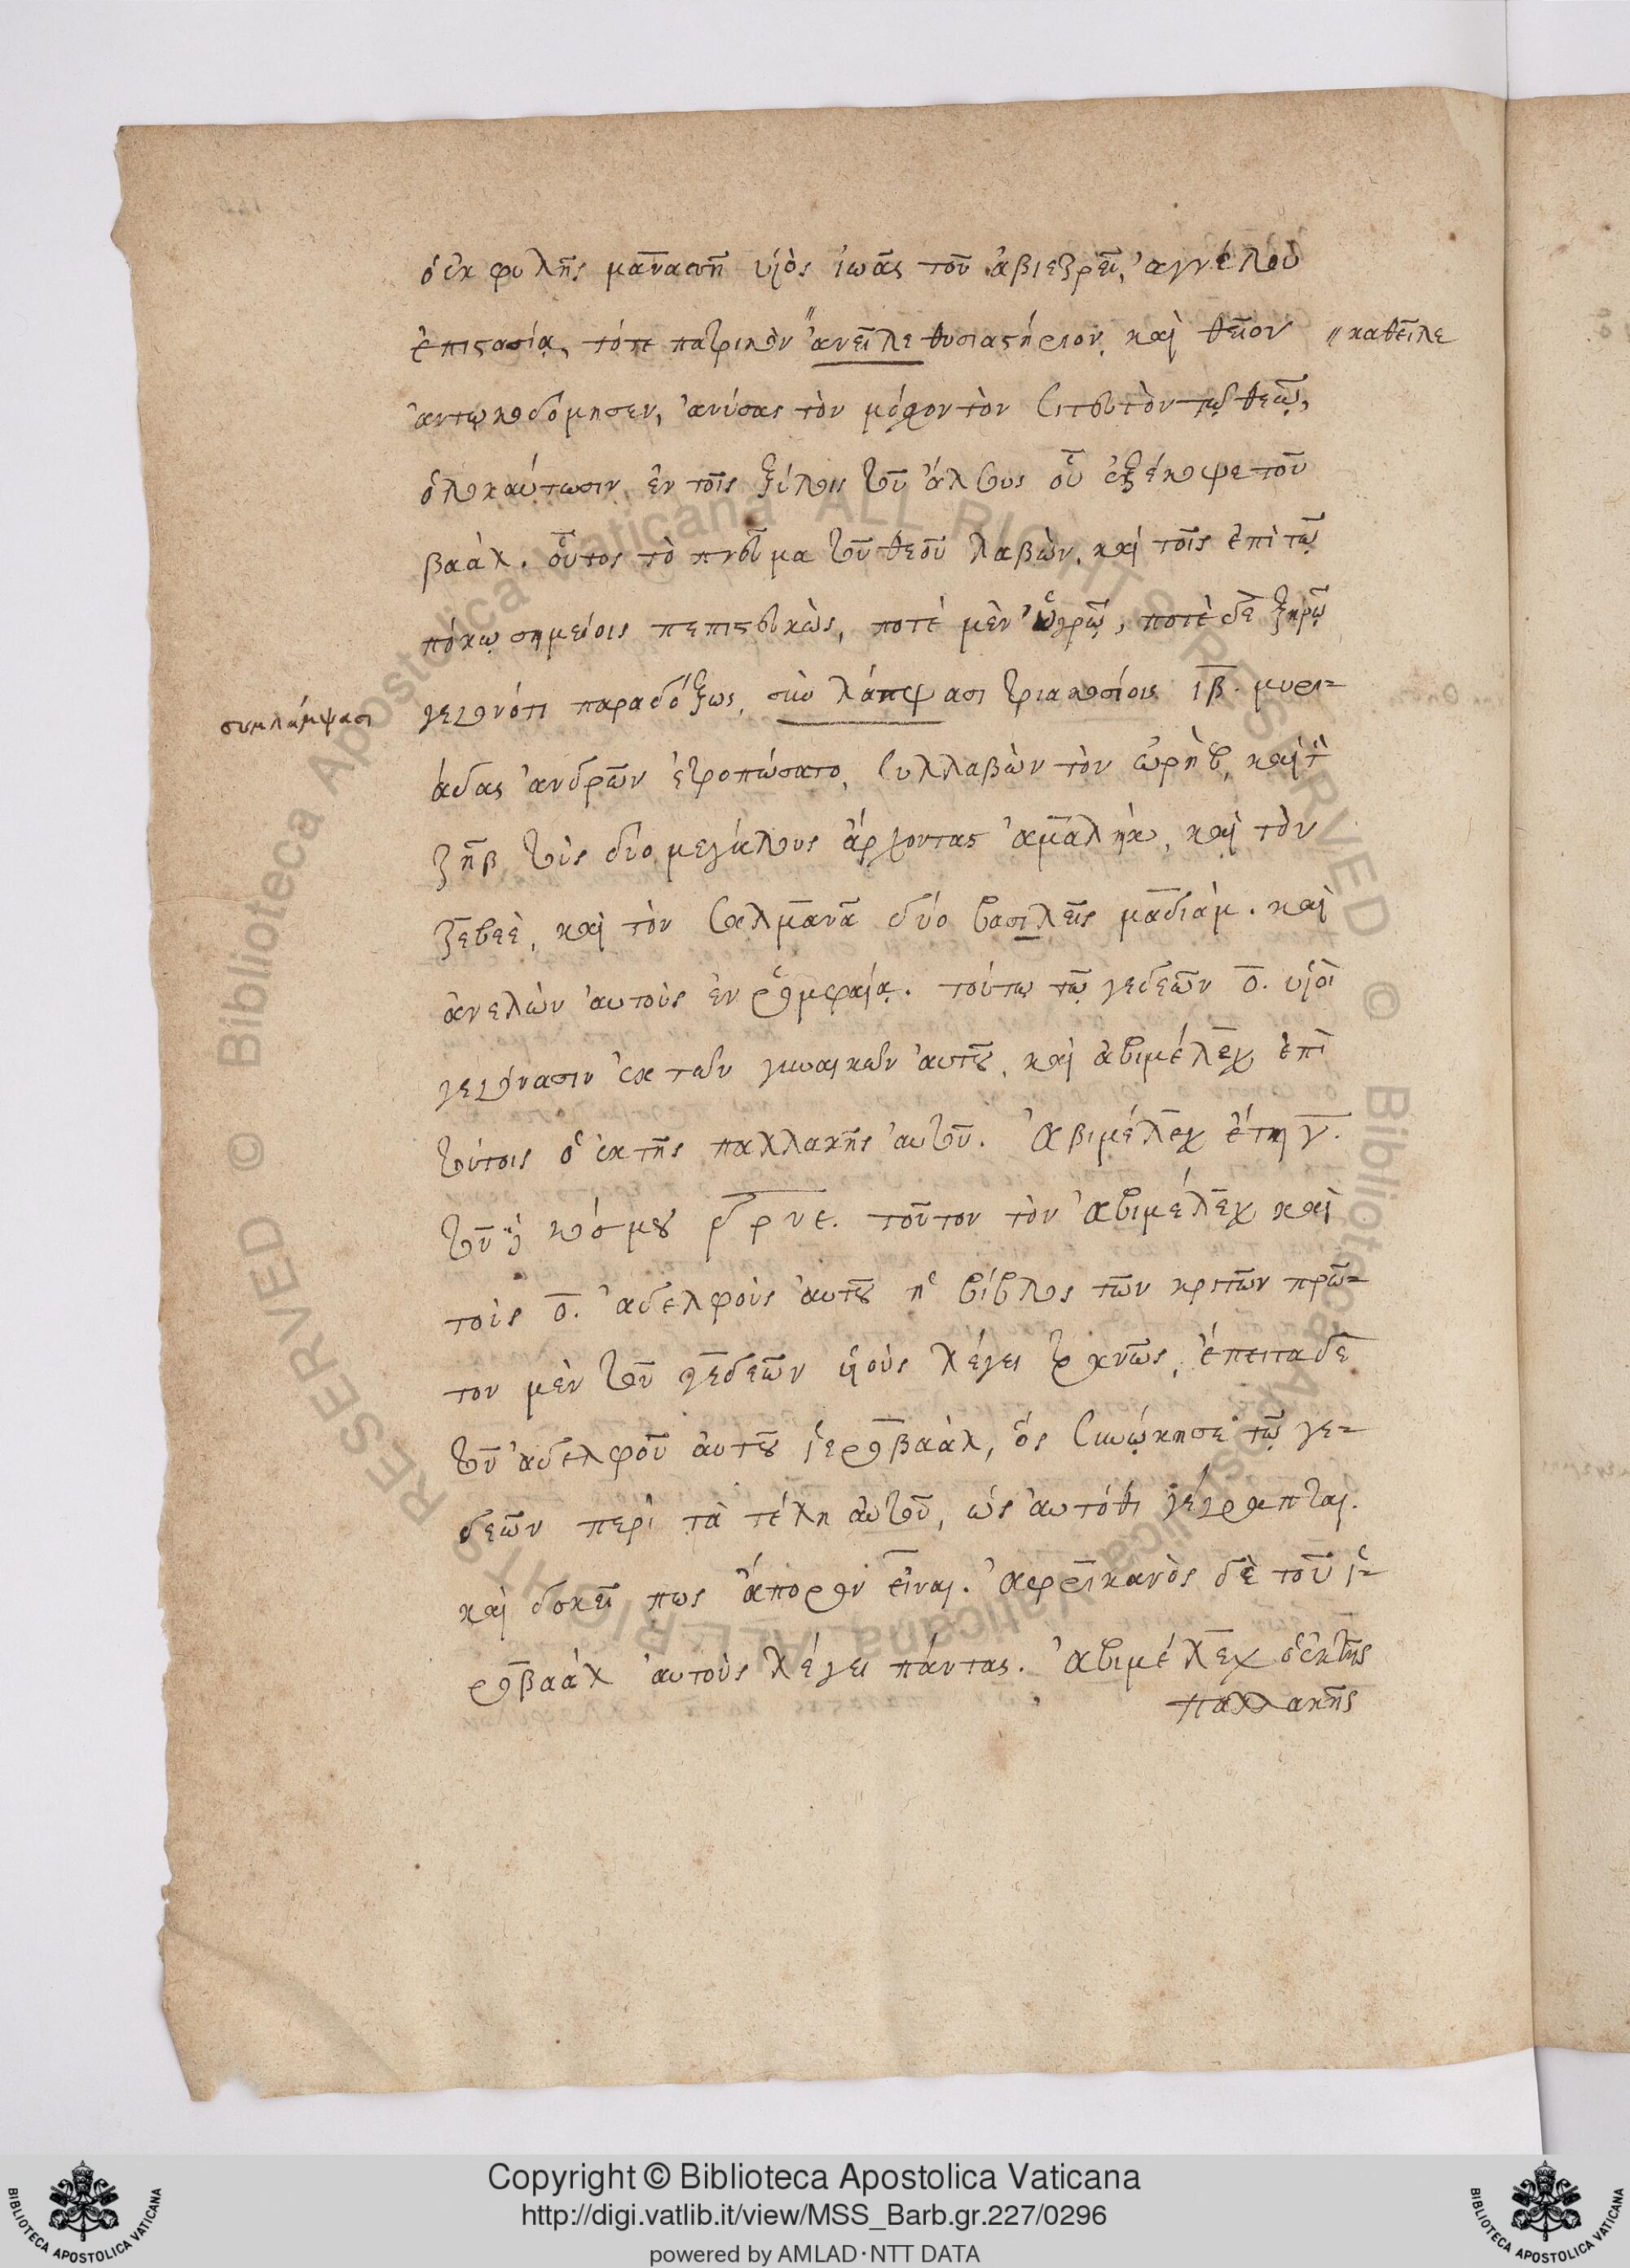 ὁ ἐκ φυλῆς μανασσῆ υἱὸς ἰωὰς τοῦ ἀβιεζρεῖ, ἀγγέλου
ἐπιστασίᾳ, τότε πατρικὸν "ἀνεῖλε θυσιαστήριον, καὶ θεῖον "καθεῖλε
ἀντῳκοδόμησεν, ἀνύσας τὸν μόσχον τὸν σιτευτὸν τῷ θεῷ,
ὁλοκαύτωσιν, ἐν τοῖς ξύλοις τοῦ ἄλσους οὗ ἐξέκοψε τοῦ
βαάλ. οὗτος τὸ πνεῦμα τοῦ θεοῦ λαβὼν, καὶ τοῖς ἐπὶ τῷ
πόκῳ σημείοις πεπιστευκὼς, ποτὲ μὲν ὑγρῷ, ποτὲ δὲ ξηρῷ
συνλάμψασι γεγονότι παραδόξως, σὺν λάπψασι τριακοσίοις ιβ. μυρι=
άδας ἀνδρῶν ἐτροπώσατο, συλλαβὼν τὸν ὠρὴβ, καὶ τὸν
ζῆβ τοὺς δύο μεγάλους ἄρχοντας ἀμαλὴκ, καὶ τὸν
ζεβεὲ, καὶ τὸν σαλμανᾶ δύο βασιλεῖς μαδιάμ. καὶ
ἀνελὼν αὐτοὺς ἐν ῥομφαίᾳ. τούτῳ τῷ γεδεὼν ο. υἱοὶ
γεγόνασιν ἐκ τῶν γυναικῶν αὐτοῦ, καὶ ἀβιμέλεχ ἐπὶ
τούτοις ὁ ἐκ τῆς παλλακῆς αὐτοῦ. Ἀβιμέλεχ ἔτη γ.
τοῦ δὲ κόσμου ͵δρνε. τοῦτον τὸν ἀβιμέλεχ καὶ
τοὺς ο. ἀδελφοὺς αὐτοῦ ἡ βίβλος τῶν κριτῶν πρῶ=
τον μὲν τοῦ γεδεὼν υἱοὺς λέγει τρανῶς, ἔπειτα δὲ
τοῦ ἀδελφοῦ αὐτοῦ ἱεροβαὰλ, ὃς συνῴκησε τῷ γε=
δεὼν περὶ τὰ τέλη αὐτοῦ, ὡς αὐτόθι γέγραπται.
καὶ δοκεῖ πως ἄπορον εἶναι. Ἀφρικανὸς δὲ τοῦ ἱε=
ροβαὰλ αὐτοὺς λέγει πάντας. Ἀβιμέλεχ ὁ ἐκ τῆς
παλλακῆς
Copyright © Biblioteca Apostolica Vaticana
http://digi.vatlib.it/view/MSS_Barb.gr.227/0296
powered by AMLAD·NTT DATA